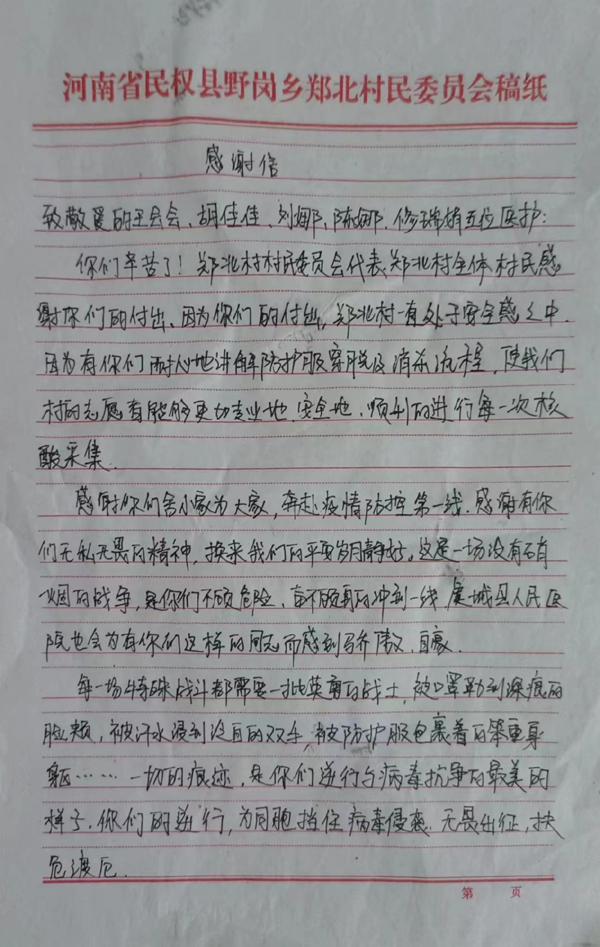 河南省民权县野岗乡郑北村民委员会稿纸
感谢信
致敬爱的王会会、胡佳佳、刘娜、陈娜、修瑞楠五位医护:
你们辛苦了!郑北村村民委员会代表郑北村全体村民感
谢你们的付出、因为你们的付出,郑北村一直处于安全感之中.
因为有你们耐心地讲解防护服穿脱及消杀流程,使我们
村的志愿者能够更加专业地.安全地.顺利的进行每一次核
酸采集.
感谢你们舍小家为大家,奔赴疫情防控第一线.感谢有你
们无私无畏的精神,换来我们的平安岁月静好。这是一场没有硝
烟的战争,是你们不顾危险、奋不顾身的冲到一线.虞城县人民医
院也会为有你们这样的同志而感到骄傲、自豪.
每一场特殊战斗都需要一批英勇的战士,被口罩勒到深痕的
脸颊,被汗水浸到泛白的双手,被防护服包裹着的笨重身
躯……一切的痕迹,是你们逆行与病毒抗争的最美的
样子.你们的逆行,为同胞挡住病毒侵袭.无畏出征,扶
危渡厄.
第 页